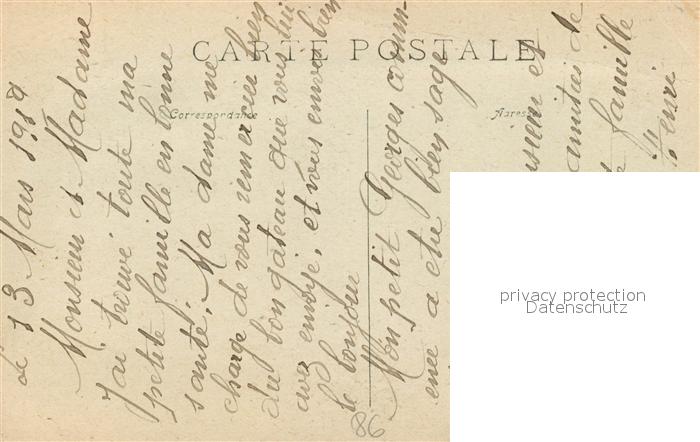 CARTE POSTALE
Correspondance
Adresse
le 13 Mars 1919
Monsieur et Madame
J'ai trouvé toute ma
petite famille en bonne
santé, Ma dame me
charge de vous remercier bien
du bon gateau que vous lui
avez envoyé, et vous envoie bien
le bonjour
Mon petit Georges comm-
ence a etre bien sage
et
amities de
famille
Henri
86
privacy protection
Datenschutz